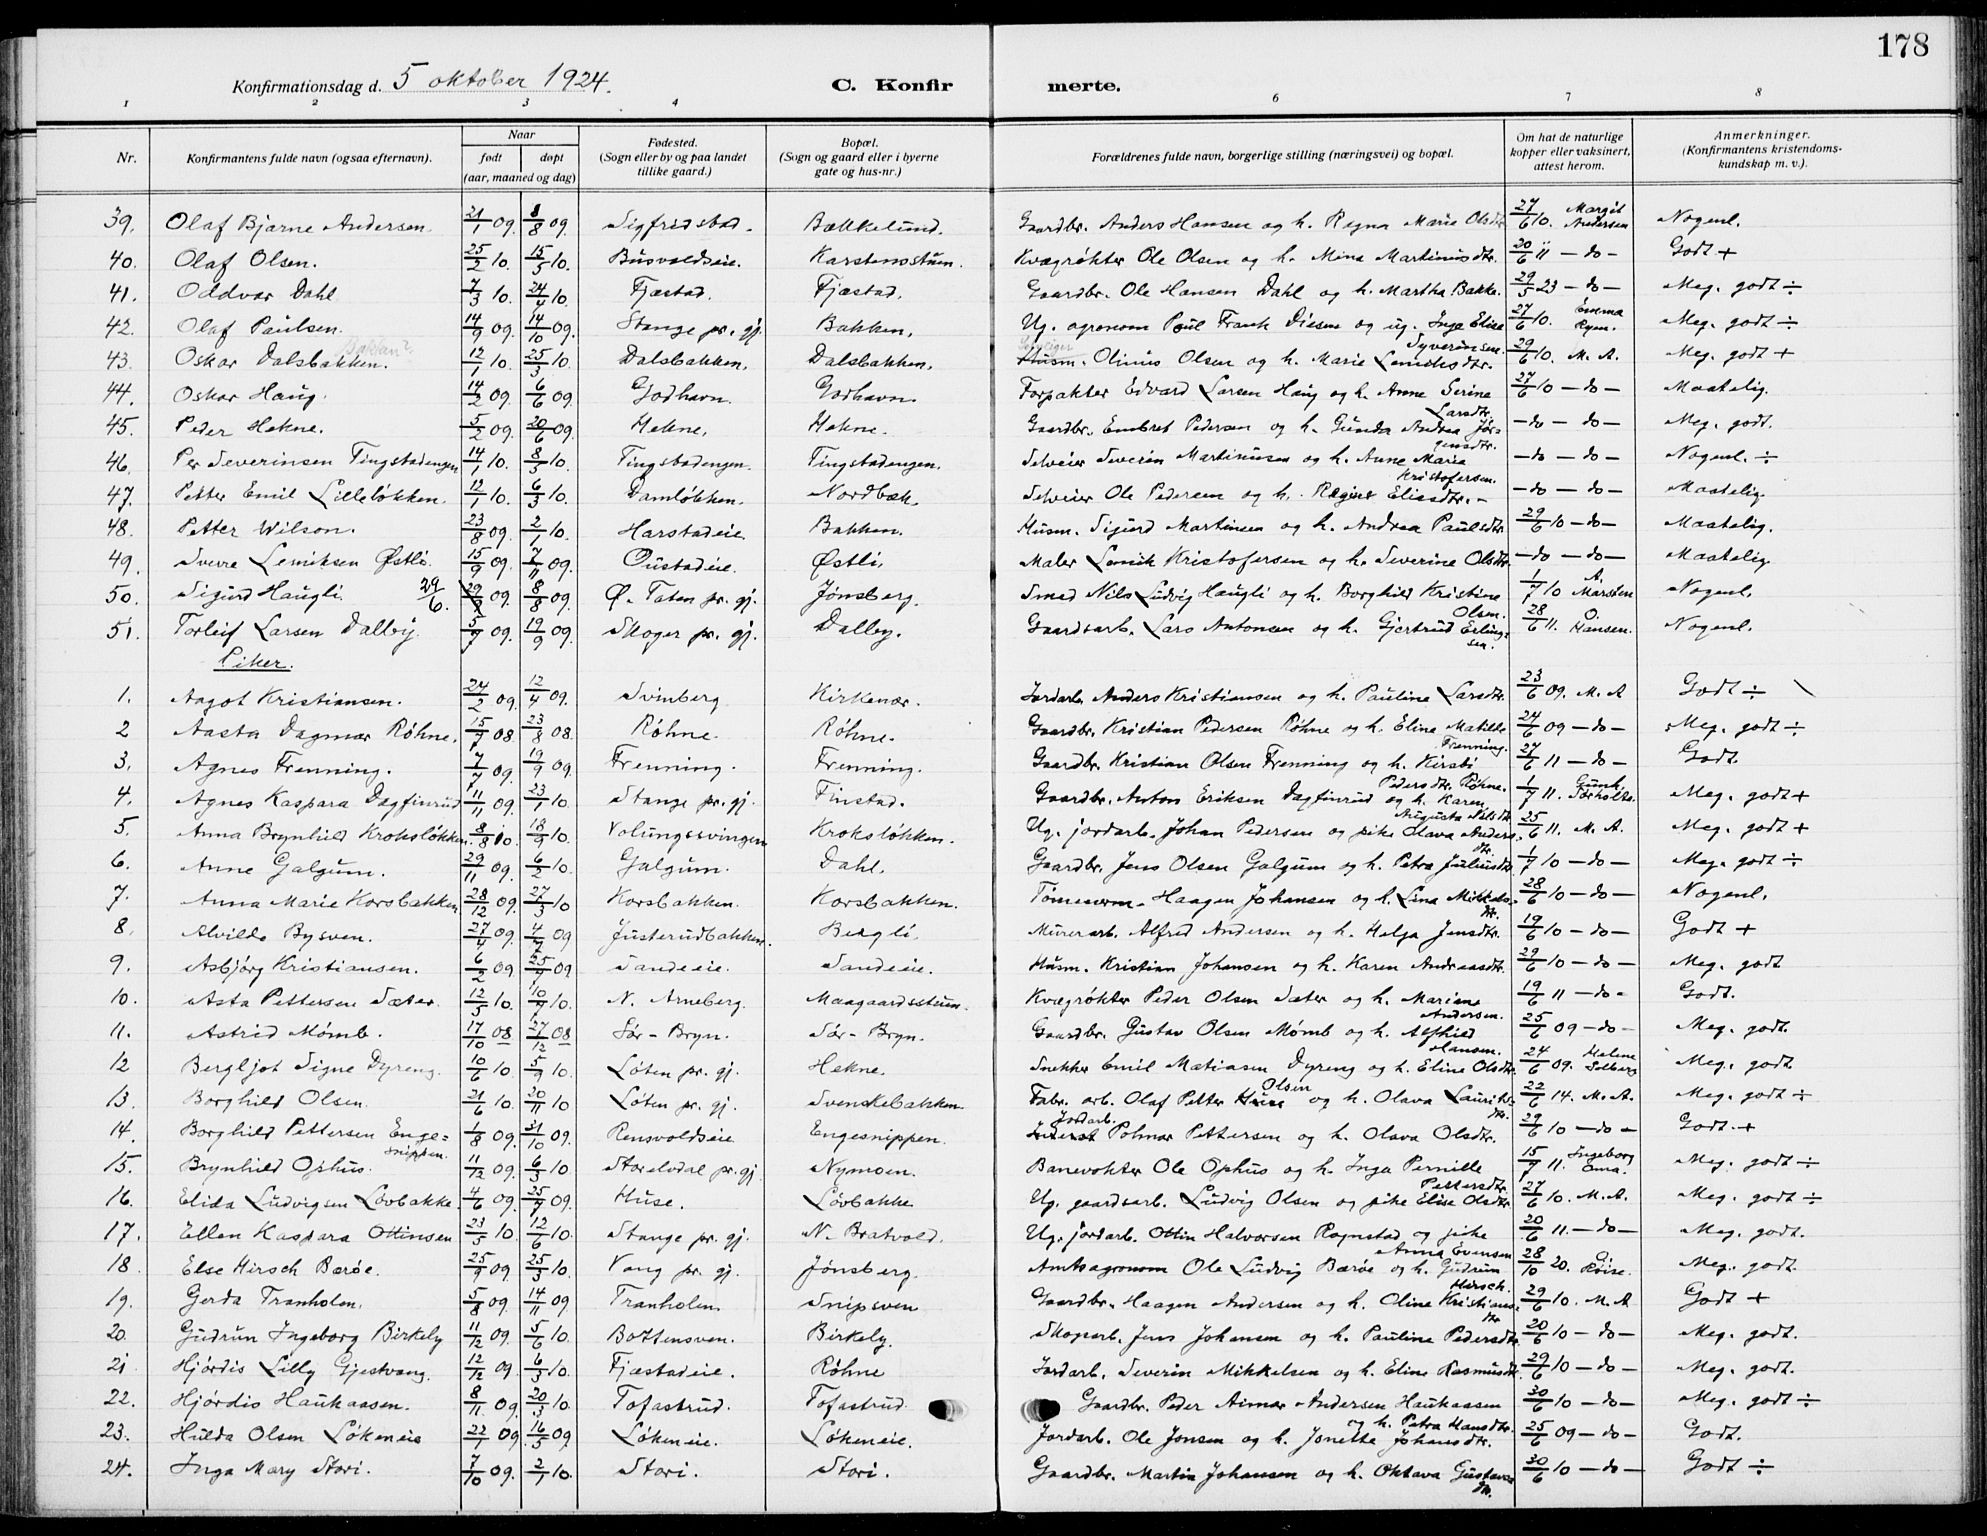 178
Konfirmationsdag d. 5 oktober 1924.
C. Konfir merte.
1 2 3 4 6 7 8
Nr. Konfirmantens fulde navn (ogsaa efternavn). Naar født døpt (aar, maaned og dag) Fødested. (Sogn eller by og paa landet tillike gaard.) Bopæl. (Sogn og gaard eller i byerne gate og hus-nr.) Forældrenes fulde navn, borgerlige stilling (næringsvei) og bopæl. Om hat de naturlige kopper eller vaksinert, attest herom. Anmerkninger. (Konfirmantens kristendomskundskap m. v.).
39. Olaf Bjarne Andersen. 21/1 09. 1/8 09. Sigfridstad. Bækkelund. Gaardbr. Anders Hansen og h. Ragna Marie Olsdtr. 27/6 10. Margit Andersen Nogenl.
40. Olaf Olsen. 25/2 10. 15/5 10. Busvoldseie. Karstensstuen. Kvægrøkter Ole Olsen og h. Mina Martinusdtr. 20/6 11 - do - Godt +
41. Oddvar Dahl 7/3 10. 24/4 10. Fjæstad. Fjæstad. Gaardbr. Ole Hansen Dahl og h. Martha Bakke. 29/5 23 - do - Meg. godt ÷
42. Olaf Paulsen. 14/9 09. 14/10 09. Stange pr. gj. Bakken. Ug. agronom Poul Frank Diesen og ug. Inga Elisa Syverinsen. 27/6 10. Emma Rym. Meg. godt ÷
43. Oskar Dalsbakken. 12/1 10. 25/3 10. Dalsbakken. Dalsbakken. Husm. Olinus Olsen og h. Marie Lemiksdtr. 29/6 10. M. A. Meg. godt +
44. Oskar Haug. 14/2 09. 6/6 09. Godhavn. Godhavn. Forpakter Edvard Larsen Haug og h. Anne Serine Larsdtr. 27/6 10 - do - Maatelig.
45. Peder Hekne. 5/2 09. 20/6 09. Hekne. Hekne. Gaardbr. Embret Pedersen og h. Gunda Andrea Jørgensdtr. - do - do - Meg. godt.
46. Per Severinsen Tingstadengen 14/1 10. 8/5 10. Tingstadengen. Tingstadengen. Selveier Severin Martinusen og h. Anne Maria Kristofersen. - do - do - Nogenl. ÷
47. Petter Emil Lilleløkken. 12/1 10. 6/3 10. Damløkken. Nordbæk. Selveier Ole Pedersen og h. Regine Eliasdtr. - - do - do - Maatelig.
48. Petter Wilson. 23/8 09. 2/1 10. Harstadeie Bakken. Husm. Sigurd Martinsen og h. Andrea Paulsdtr. 29/6 10 - do - Maatelig.
49. Sverre Lemiksen Østli. 15/9 09. 7/11 09. Oustadeie. Østli. Maler Lemik Kristofersen og h. Severine Olsdtr. - do - do - Maatelig.
50. Sigurd Haugli. 29/6. 09. 8/8 09. Ø. Toten pr. gj. Jønsberg. Smed Nils Ludvig Haugli og h. Borghild Kristine Olsen. 1/7 10 A. Marstein Nogenl.
51. Torleif Larsen Dalby. 5/7 09. 19/9 09. Skoger pr. gj. Dalby. Gaardsarb. Lars Antonsen og h. Gjertrud Erlingsen. 28/6 11. O. Hansen. Nogenl.
Piker.
1. Aagot Kristiansen. 24/2 09. 12/4 09. Svinberg Kirkenær. Jordarb. Anders Kristiansen og h. Pauline Larsdtr. 23/6 09. M. A Godt ÷
2 Aasta Dagmar Røhne. 15/7 08. 23/8 08. Røhne. Røhne. Gaardbr. Kristian Pedersen Røhne og h. Eline Matilde Frenning. 24/6 09 - do - Meg. godt ÷
3. Agnes Frenning. 7/7 09. 19/9 09. Frenning. Frenning. Gaardbr. Kristian Olsen Frenning og h. Kirsti Pedersdtr. Røhne. 27/6 11 - do - Godt.
4. Agnes Kaspara Dagfinrud 11/11 09. 23/1 10. Stange pr. gj. Finstad. Gaardbr. Anton Eriksen Dagfinrud og h. Karen Augusta Nilsdtr. 1/7 11. Gunh. Sørholte. Meg. godt +
5. Anna Brynhild Kroksløkken. 8/8 10. 18/9 10. Volungssvingen Kroksløkken. Ug. jordarb. Johan Pedersen og pike Olava Andersdtr. 25/6 11. M. A. Meg. godt +
6. Anne Galgum. 29/11 09. 6/2 10. Galgum. Dahl. Gaardbr. Jens Olsen Galgum og h. Petra Juliusdtr. 1/7 10 - do - Meg. godt ÷
7. Anna Marie Korsbakken 28/12 09. 27/3 10 Korsbakken. Korsbakken. Tømmerm. Haagen Johansen og h. Lina Mikkelsdtr. 28/6 10 - do - Nogenl.
8. Alvilde Bysven. 27/4 09. 4/7 09 Justerudbakken. Bergli. Murerarb. Alfred Andersen og h. Helga Jensdtr. 19/6 10 - do - Godt +
9. Asbjørg Kristiansen. 6/2 09. 25/7 09 Sandeeie. Sandeeie. Husm. Kristian Johansen og h. Karen Andreasdtr. 29/6 10 - do - Meg. godt
10. Asta Pettersen Sæter. 12/5 10. 10/7 10. N. Arneberg. Maagaardsstuen. Kvægrøkter Peder Olsen Sæter og h. Mariane Andersen. 19/6 11 - do - Godt.
11. Astrid Mømb. 17/10 08 27/12 08 Sør-Bryn. Sør-Bryn. Gaardbr. Gustav Olsen Mømb og h. Alfhild Hansen. 25/6 09 - do - Meg. godt.
12 Bergljot Signe Dyreng. 10/6 10. 5/9 10. Løten pr. gj. Hekne. Snekker Emil Matiasen Dyreng og h. Eline Olsdtr. 24/6 09. Helene Solberg Meg. godt
13. Borghild Olsen. 21/6 10. 20/11 10 Løten pr. gj. Svenskebakken. Fabr. arb. Olaf Petter Huse Olsen og h. Olava Lauritsdtr. 22/6 14. M. A. Meg. godt ÷
14. Borghild Pettersen Engesnippen. 1/8 09. 31/10 09. Rensvoldseie Engesnippen. Jordarb. Polmar Pettersen og h. Olava Olsdtr. 29/6 10 - do - Godt. +
15. Brynhild Ophus. 11/12 09. 6/3 10. Storelvdal pr. gj. Nymoen. Banevokter Ole Ophus og h. Inga Pernille Pettersdtr. 15/7 11. Ingeborg Meg. godt ÷
16. Elida Ludvigsen Lövbakke. 4/6 09. 25/7 09. Huse. Lövbakke Ug. gaardsarb. Ludvig Olsen og pike Elise Olsdtr. 27/6 10. M. A. Meg. godt ÷
17. Ellen Kaspara Ottinsen 23/5 10. 12/6 10. Stange pr. gj. N. Bratvold. Ug. jordarb. Ottin Halvorsen Rognstad og pike Anna Evensen 20/6 11. - do - Meg. godt.
18. Else Hirsch Bærøe. 25/9 09. 25/3 10. Vang pr. gj. Jønsberg. Amtsagronom Ole Ludvig Bærøe og h. Gudrun Hirsch. 28/10 20. O. Røise. Meg. godt.
19. Gerda Tranholen. 5/8 09. 14/11 09 Tranholen. Snipsven Gaardbr. Haagen Andersen og h. Oline Kristiansdtr. 29/6 10. M. A Godt +
20. Gudrun Ingeborg Birkely 11/12 09. 5/6 10. Bottensven. Birkely. Skogarb. Jens Johansen og h. Pauline Pedersdtr. 20/6 10 - do - Meg. godt.
21 Hjördis Lilly Gjestvang. 12/12 09. 6/3 10. Fjæstadeie. Røhne Jordarb. Severin Mikkelsen og h. Eline Rasmusdtr. 29/6 10 - do - Meg. godt.
22. Hjördis Haukaasen. 8/11 09. 20/3 10. Tofastrud. Tofastrud. Gaardbr. Peder Aimar Andersen Haukaasen og h. Petra Hansdtr. 30/6 10 - do - Meg. godt ÷
23. Hulda Olsen Løkeneie 22/1 09. 16/5 09. Løkeneie. Løkeneie. Jordarb. Ole Jonsen og h. Jonette Johansdtr. 25/6 09 - do - Godt.
24. Inga Mary Stori. 7/10 09. 2/1 10. Stori. Stori. Gaardbr. Martin Johansen og h. Oktava Gustavsdtr. 30/6 10 - do - Godt ÷